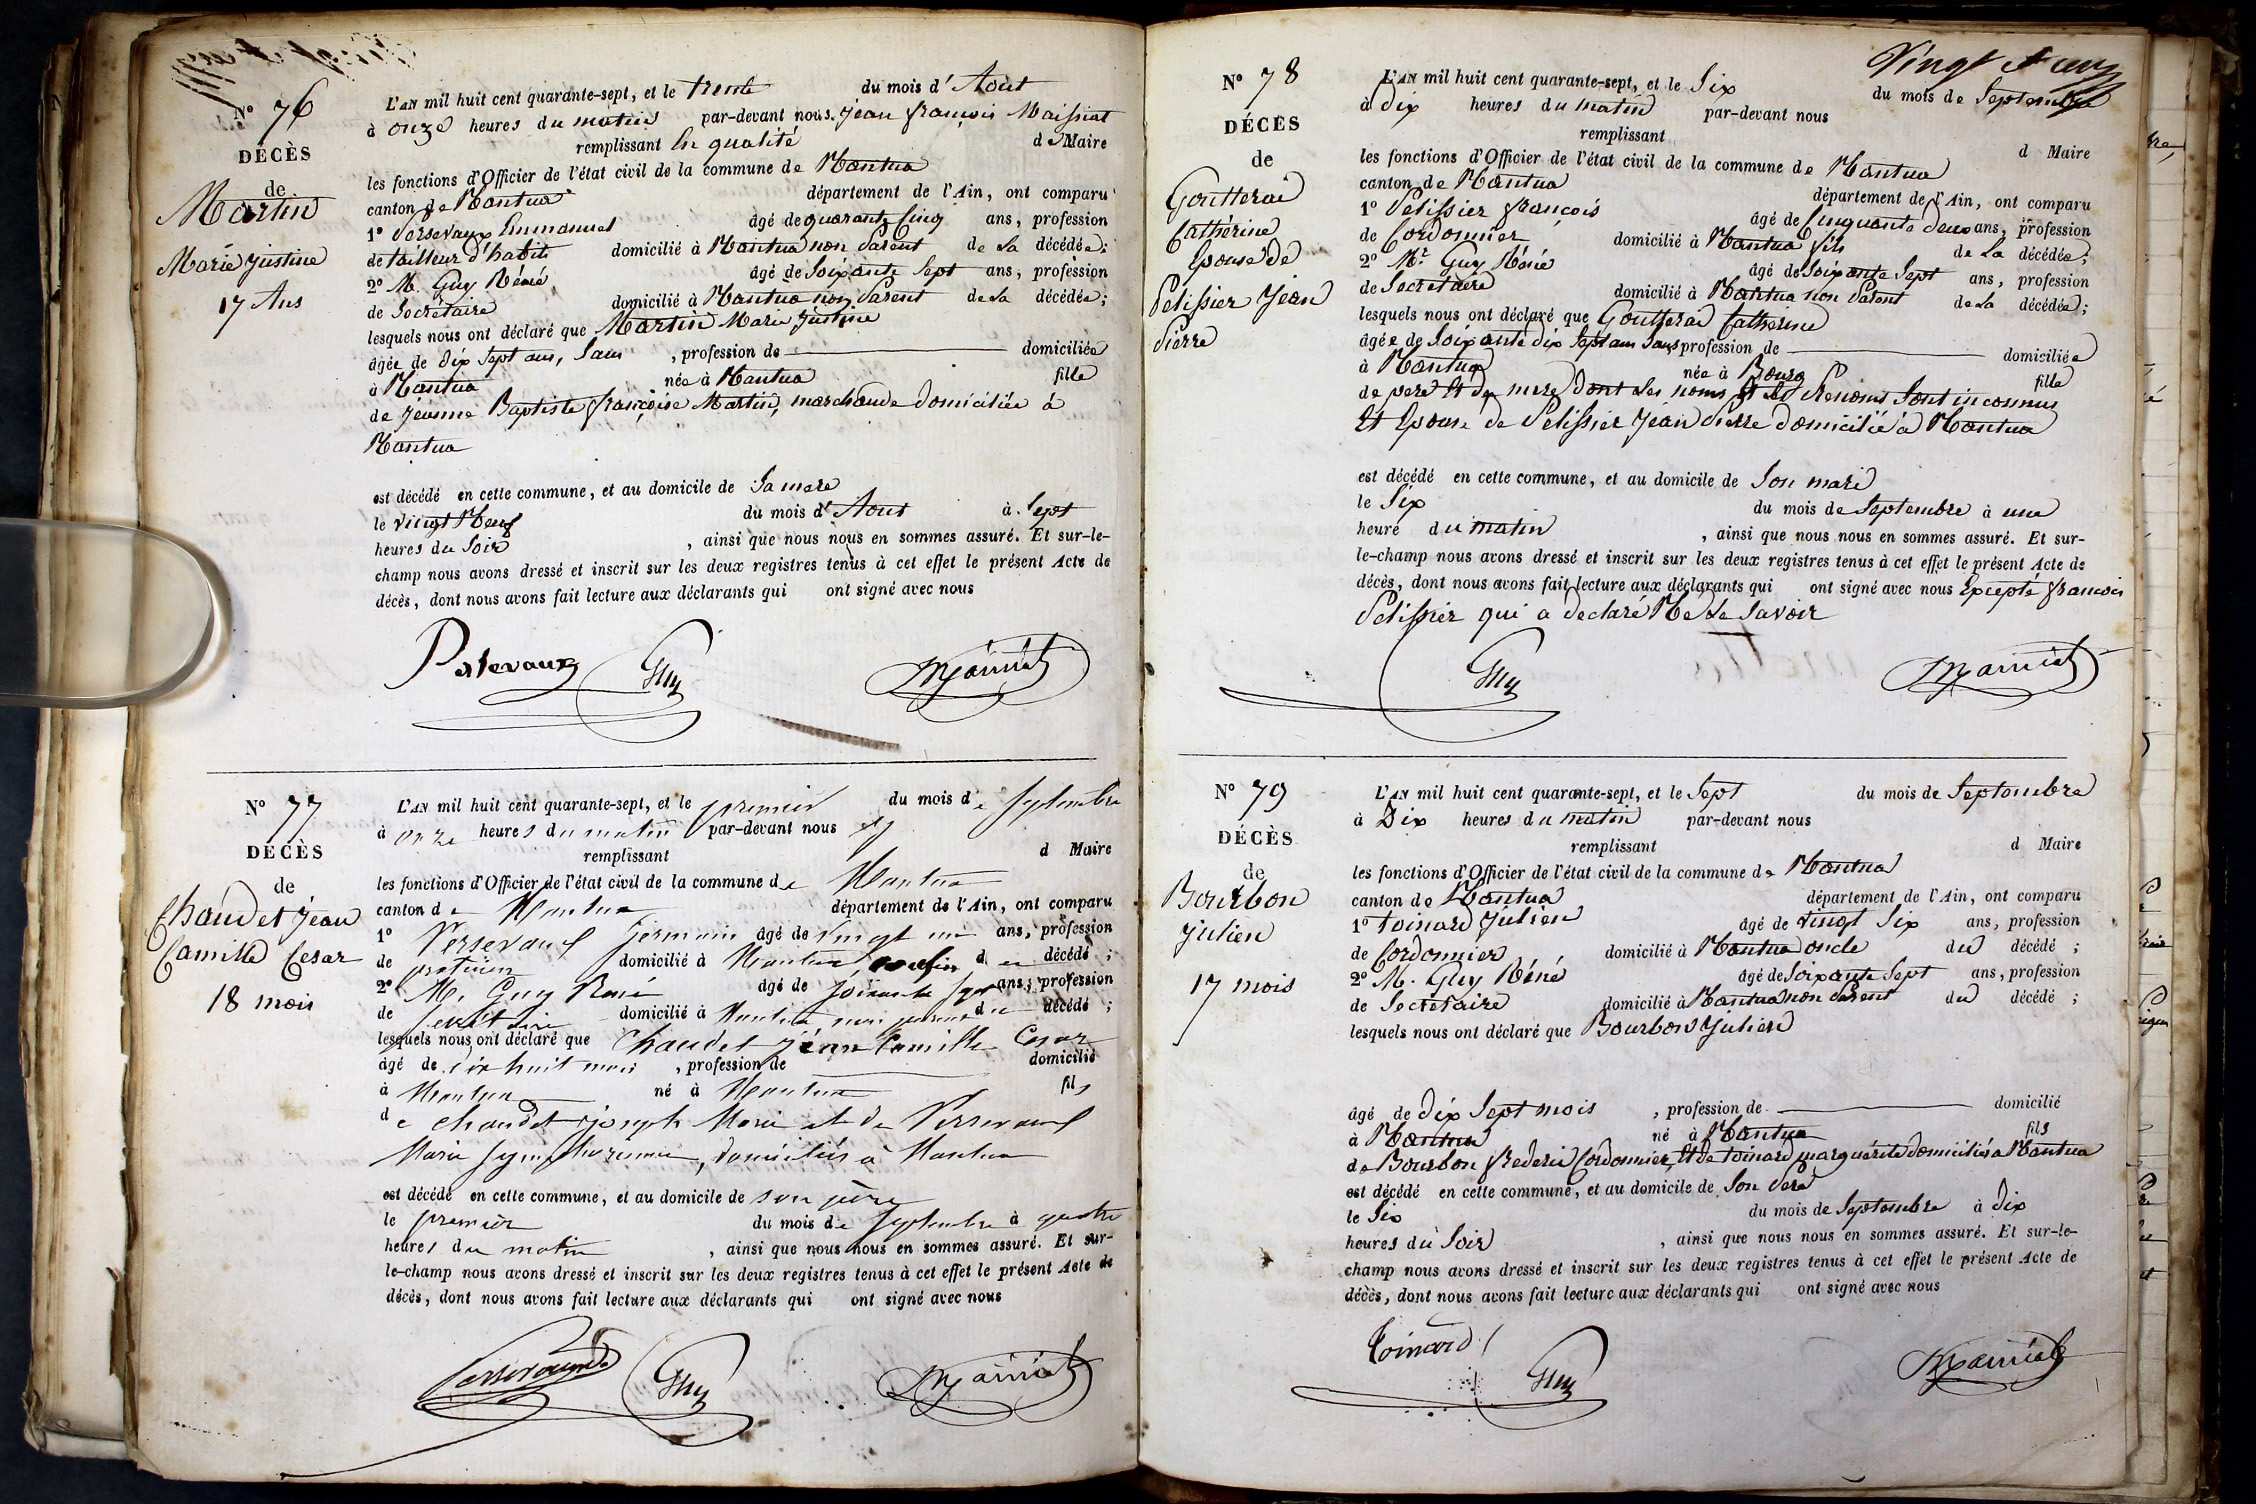 N° 76
DÉCÈS
de
Martin
Marie Justine
17 Ans
L'AN mil huit cent quarante-sept, et le trente du mois d'Août
à onze heures du matin par-devant nous Jean françois Maissiat
remplissant En qualité de Maire
les fonctions d'Officier de l'état civil de la commune de Nantua
canton de Nantua département de l'Ain, ont comparu
1° Persevaux Emmanuel âgé de quarante Cinq ans, profession
de tailleur d'habits domicilié à Nantua non Parent de La décédée;
2° M. Guy Réné âgé de Soixante Sept ans, profession
de Secrétaire domicilié à Nantua non Parent de La décédée;
lesquels nous ont déclaré que Martin Marie Justine
âgée de dix Sept ans, Sans , profession de domiciliée
à Nantua née à Nantua fille
de Jeanne Baptiste françoise Martin, marchande domiciliée à
Nantua
est décédé en cette commune, et au domicile de Sa mere
le vingt Neuf du mois d'Aout à Sept
heures du Soir , ainsi que nous nous en sommes assuré. Et sur-le-
champ nous avons dressé et inscrit sur les deux registres tenus à cet effet le présent Acte de
décès, dont nous avons fait lecture aux déclarants qui ont signé avec nous
Persevaux Guy Maissiat
N° 77
DÉCÈS
de
Chaudet Jean
Camille Cesar
18 mois
L'AN mil huit cent quarante-sept, et le premier du mois de Septembre
à onze heures du matin par-devant nous
remplissant d Maire
les fonctions d'Officier de l'état civil de la commune de Nantua
canton de Nantua département de l'Ain, ont comparu
1° Persevaux Germain âgé de vingt un ans, profession
de praticien domicilié à Nantua, cousin du décédé;
2° M. Guy René âgé de soixante sept ans, profession
de secrétaire domicilié à Nantua non parent du décédé;
lesquels nous ont déclaré que Chaudet Jean Camille Cesar
âgé de dix huit mois , profession de domicilié
à Nantua né à Nantua fils
de Chaudet Joseph Marie et de Persevaux
Marie Symphorienne, domiciliés à Nantua
est décédé en cette commune, et au domicile de son père
le premier du mois de Septembre à quatre
heures du matin , ainsi que nous nous en sommes assuré. Et sur-
le-champ nous avons dressé et inscrit sur les deux registres tenus à cet effet le présent Acte de
décès, dont nous avons fait lecture aux déclarants qui ont signé avec nous
Guy Maissiat
Vingt et un
N° 78
DÉCÈS
de
Goutterai
Catherine
Epouse de
Pelissier Jean
Pierre
L'AN mil huit cent quarante-sept, et le Six du mois de Septembre
à dix heures du matin par-devant nous
remplissant d Maire
les fonctions d'Officier de l'état civil de la commune de Nantua
canton de Nantua département de l'Ain, ont comparu
1° Pelissier françois âgé de Cinquante deux ans, profession
de Cordonnier domicilié à Nantua fils de La décédée;
2° Mr Guy Réné âgé de Soixante Sept ans, profession
de Secretaire domicilié à Nantua non Parent de La décédée;
lesquels nous ont déclaré que Goutterai Catherine
âgée de Soixante dix Sept ans Sans profession de domiciliée
à Nantua née à Bourg fille
de pere Et de mere dont Les noms Et Les Prenoms Sont inconnus
Et Epouse de Pelissier Jean Pierre domicilié à Nantua
est décédé en cette commune, et au domicile de Son mari
le Six du mois de Septembre à une
heure du matin , ainsi que nous nous en sommes assuré. Et sur-
le-champ nous avons dressé et inscrit sur les deux registres tenus à cet effet le présent Acte de
décès, dont nous avons fait lecture aux déclarants qui ont signé avec nous Excepté francois
Pelissier qui a declaré Ne Le Savoir
Guy Maissiat
N° 79
DÉCÈS
de
Bourbon
Julien
17 mois
L'AN mil huit cent quarante-sept, et le Sept du mois de Septembre
à Dix heures du matin par-devant nous
remplissant d Maire
les fonctions d'Officier de l'état civil de la commune de Nantua
canton de Nantua département de l'Ain, ont comparu
1° Toinard Julien âgé de vingt Six ans, profession
de Cordonnier domicilié à Nantua oncle du décédé;
2° M. Guy Réné âgé de Soixante Sept ans, profession
de Secretaire domicilié à Nantua non Parent du décédé;
lesquels nous ont déclaré que Bourbon Julien
âgé de dix Sept mois , profession de domicilié
à Nantua né à Nantua fils
de Bourbon frederic Cordonnier, Et de Toinard marguérite domiciliés à Nantua
est décédé en cette commune, et au domicile de Son Pere
le Six du mois de Septembre à dix
heures du Soir , ainsi que nous nous en sommes assuré. Et sur-le-
champ nous avons dressé et inscrit sur les deux registres tenus à cet effet le présent Acte de
décès, dont nous avons fait lecture aux déclarants qui ont signé avec nous
Toinard Guy Maissiat